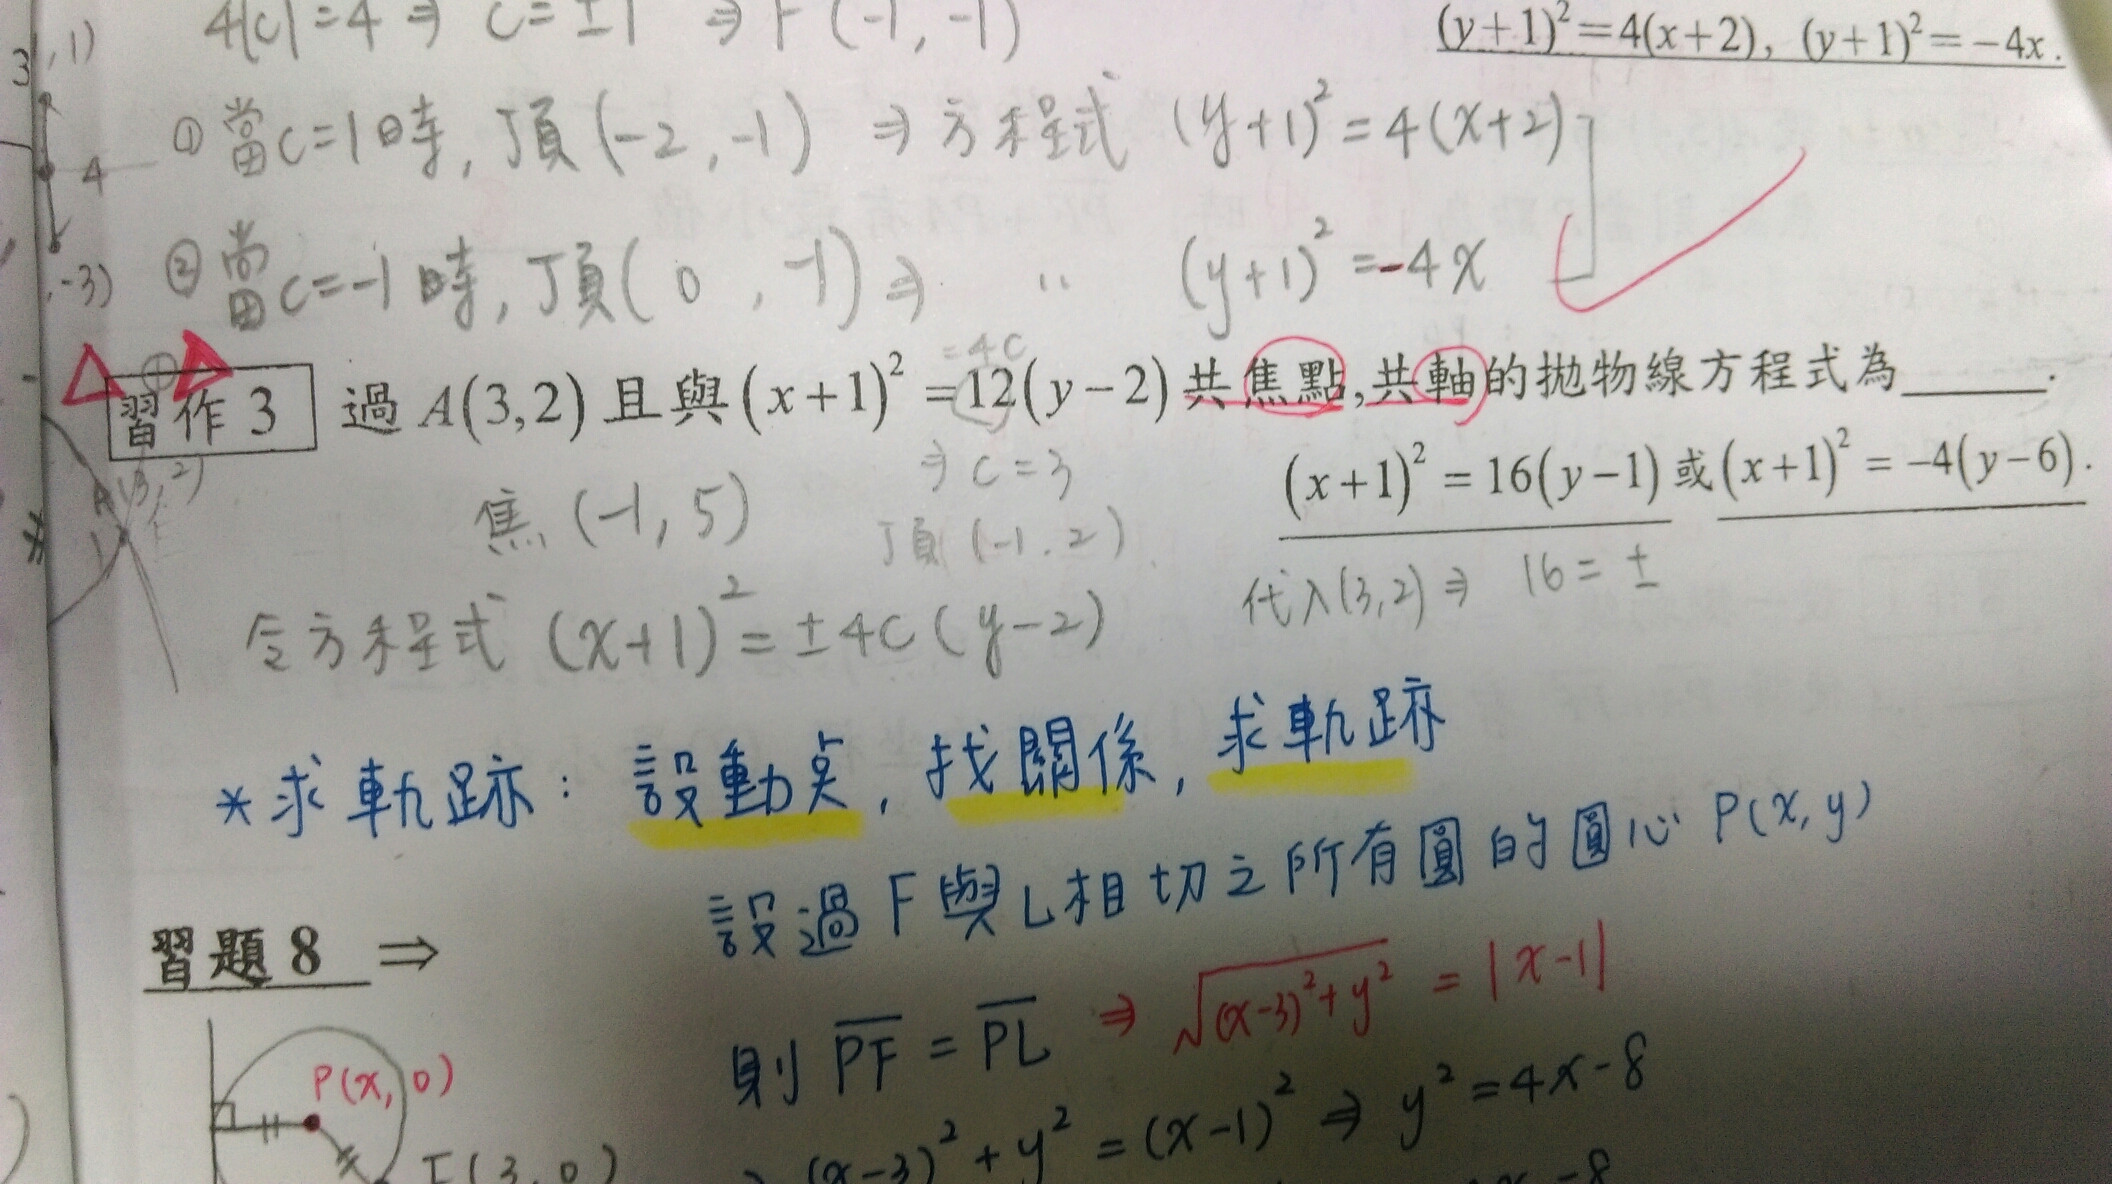 4|c|=4 ⇒ c=±1 ⇒ F(-1,-1)
(y+1)²=4(x+2), (y+1)²=-4x.
, 1)
3
① 當c=1時, 頂(-2,-1) ⇒ 方程式 (y+1)²=4(x+2)
4
② 當c=-1時, 頂(0,-1) ⇒ 〃 (y+1)²=-4x
,-3)
=4c
習作 3 過 A(3,2) 且與 (x+1)²=12(y-2) 共焦點,共軸的拋物線方程式為______.
⇒ c=3
(x+1)²=16(y-1) 或 (x+1)²=-4(y-6).
A(3,2)
焦(-1,5)
頂(-1,2)
代入(3,2) ⇒ 16=±
令方程式 (x+1)²=±4c(y-2)
*求軌跡: 設動點, 找關係, 求軌跡
設過F與L相切之所有圓的圓心 P(x,y)
習題 8 ⇒
則 PF = PL ⇒ √(x-3)²+y² = |x-1|
P(x,0)
(x-3)²+y²=(x-1)² ⇒ y²=4x-8
F(3,0)
x-8